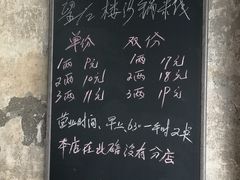 望江楼沙锅米线
单份 双份
1两 9元 1两 17元
2两 10元 2两 18元
3两 11元 3两 19元
营业时间、早上6:30一下午2点
本店在此确没有分店